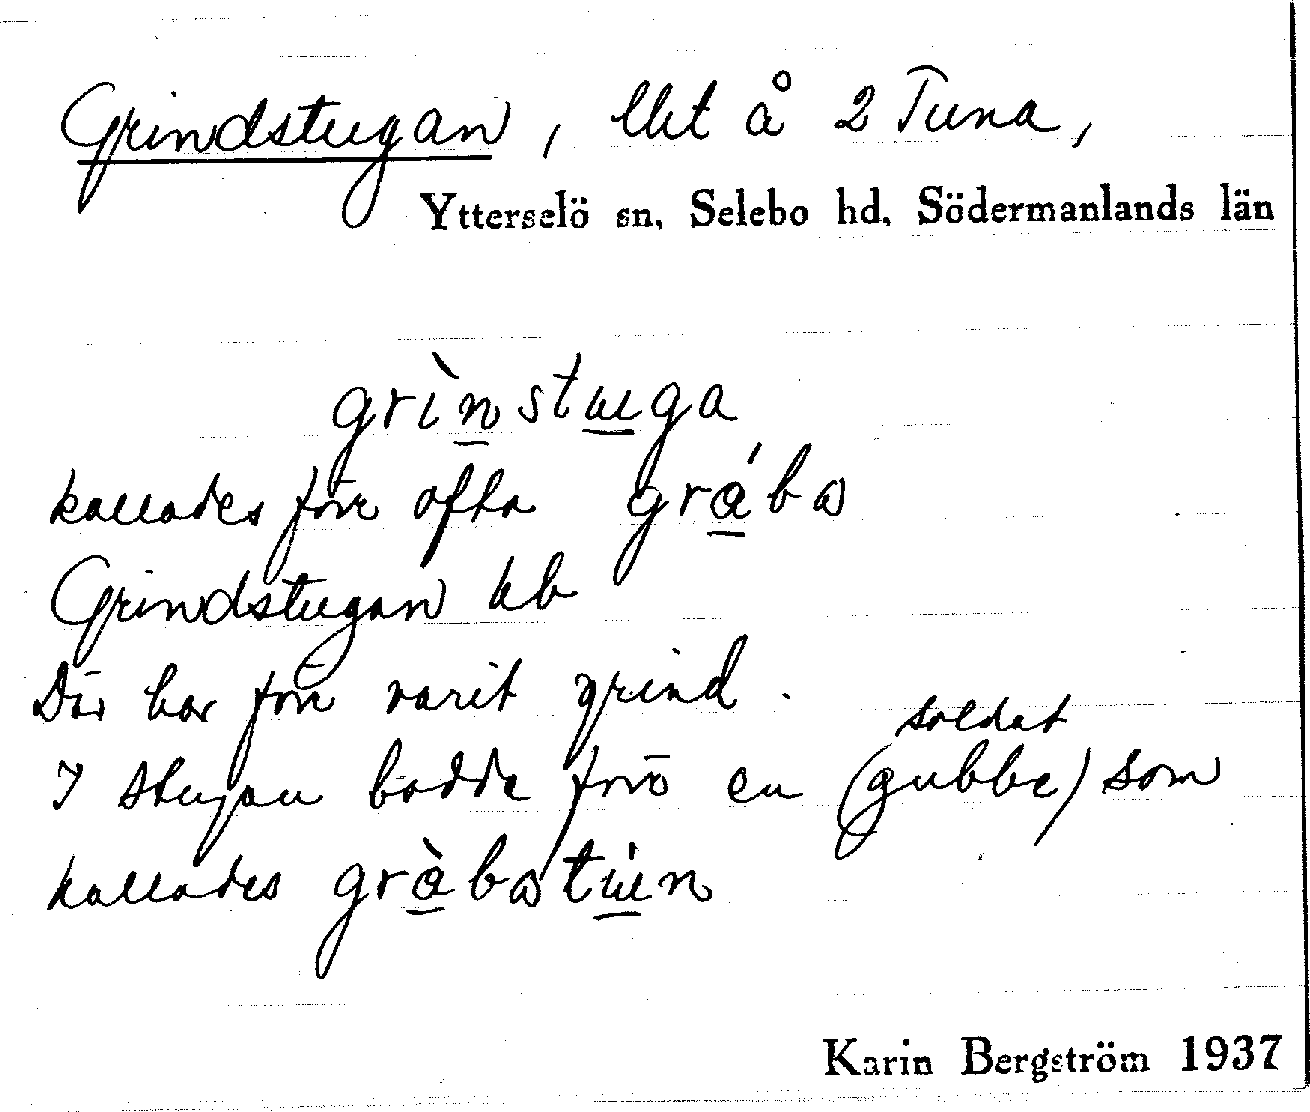 Grindstugan, lht å 2 Tuna,
Ytterselö sn, Selebo hd, Södermanlands län
grìnstɯga
kallades förr ofta grábɷ
Grindstugan kb
Där har förr varit grind.
soldat
I stugan bodde förr en (gubbe) som
kallades gràbɷstɯ́n
Karin Bergström 1937